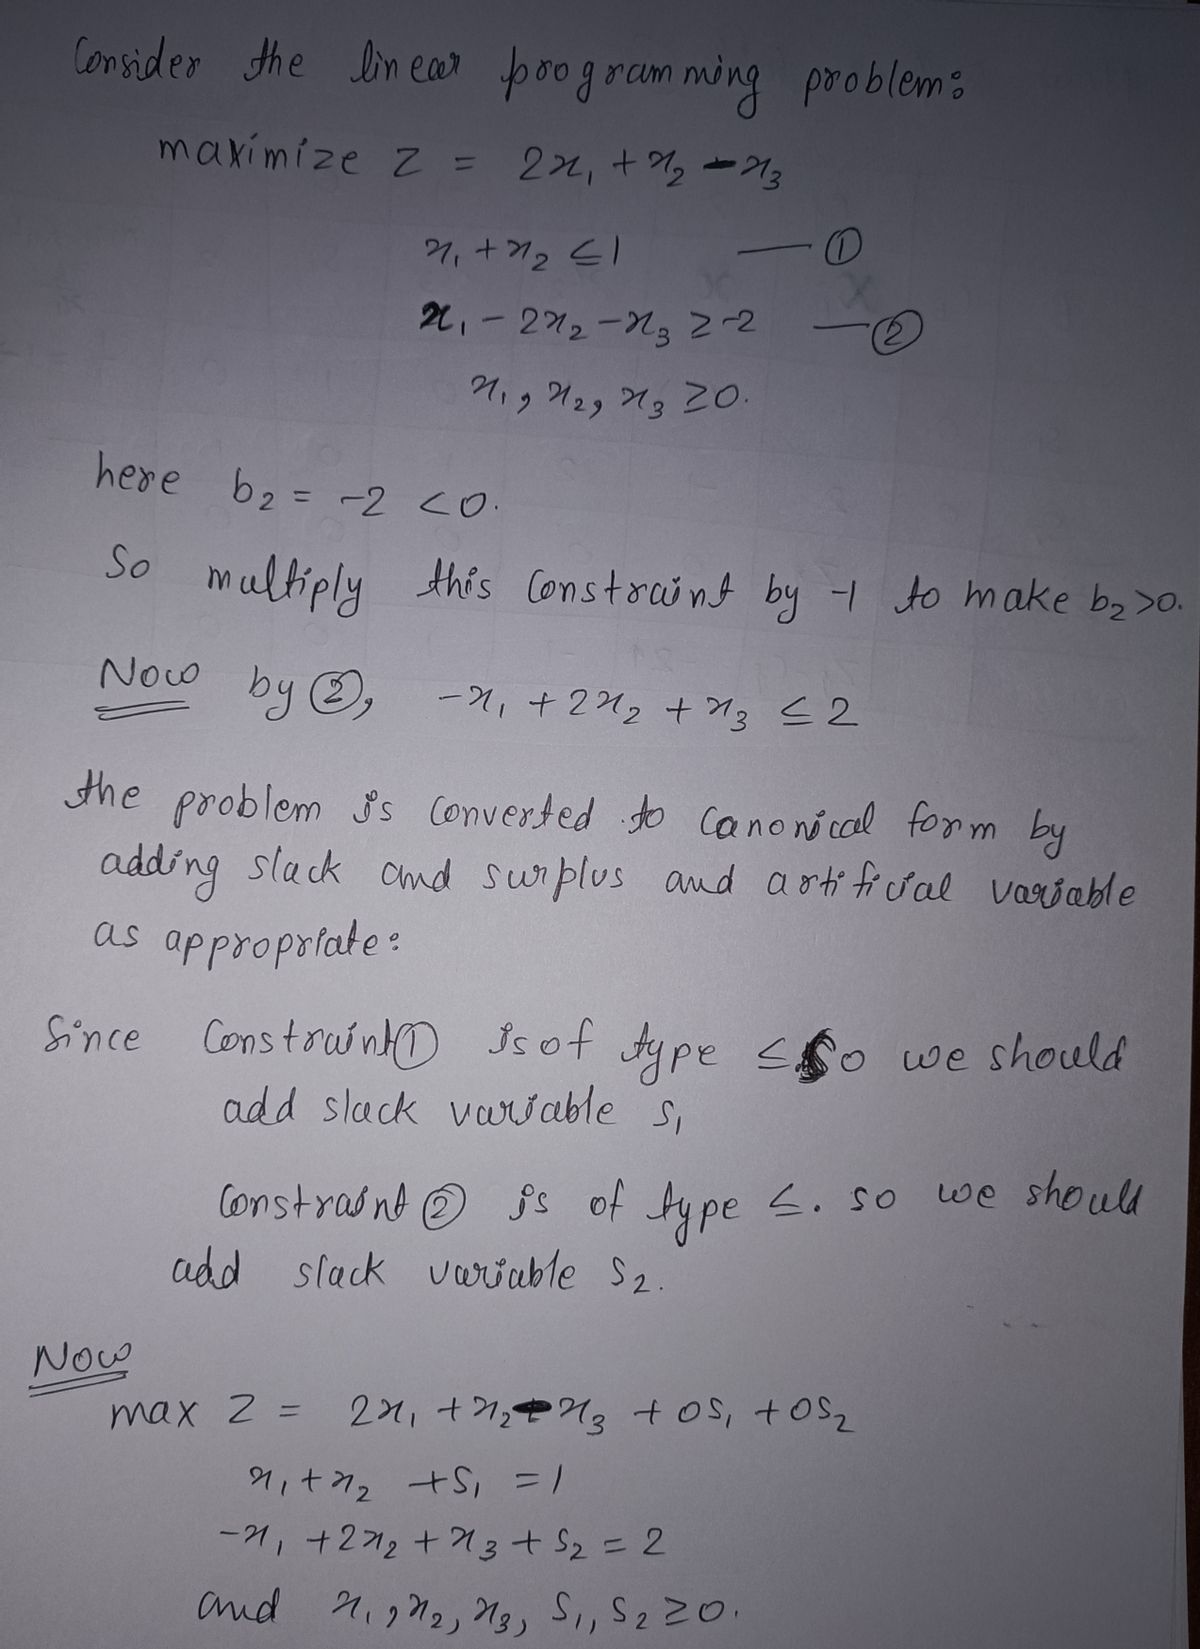 Consider the linear programming problem:
maximize Z = 2x₁ + x₂ - x₃
x₁ + x₂ ≤ 1 — ①
x₁ - 2x₂ - x₃ ≥ -2 — ②
x₁, x₂, x₃ ≥ 0.
here b₂ = -2 < 0.
So multiply this Constraint by -1 to make b₂ > 0.
Now by ②, -x₁ + 2x₂ + x₃ ≤ 2
the problem is converted to canonical form by
adding slack and surplus and artificial variable
as appropriate:
Since Constraint ① is of type ≤. So we should
add slack variable s₁
Constraint ② is of type ≤. so we should
add slack variable s₂.
Now
max Z = 2x₁ + x₂ - x₃ + 0s₁ + 0s₂
x₁ + x₂ + s₁ = 1
-x₁ + 2x₂ + x₃ + s₂ = 2
and x₁, x₂, x₃, s₁, s₂ ≥ 0.